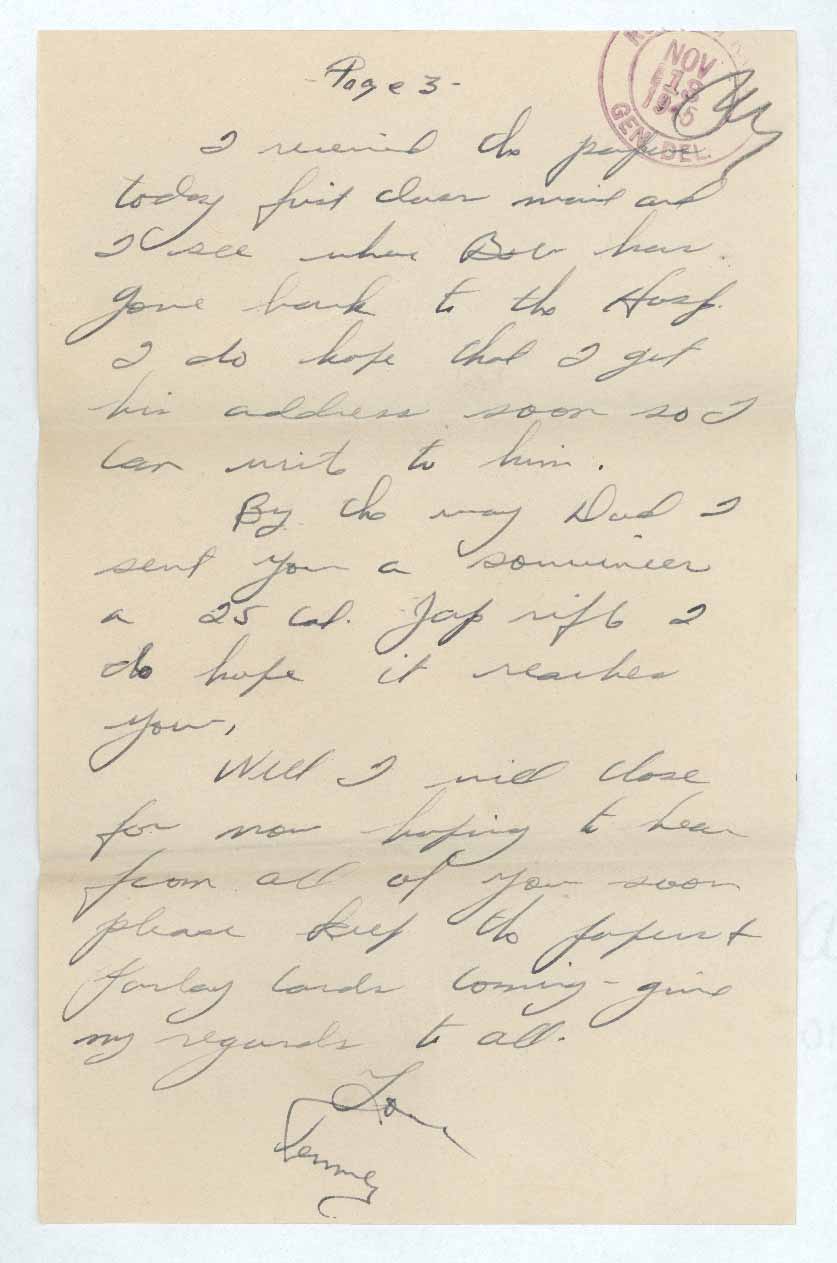 - Page 3 -
NOV
18
1945
GEN. DEL.
I received the papers
today first class mail and
I see where Bob has
gone back to the Hosp.
I do hope that I get
his address soon so I
can write to him.
By the way Dad I
sent you a souvineer
a 25 Cal. Jap rifle I
do hope it reaches
you.
Well I will close
for now hoping to hear
from all of you soon
please keep the papers &
Parlay cards coming - give
my regards to all.
Love